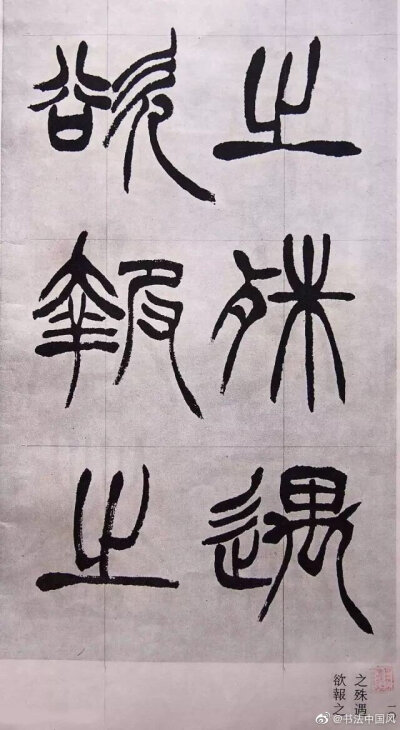 之殊遇
欲報之
之殊遇
欲報之
@书法中国风